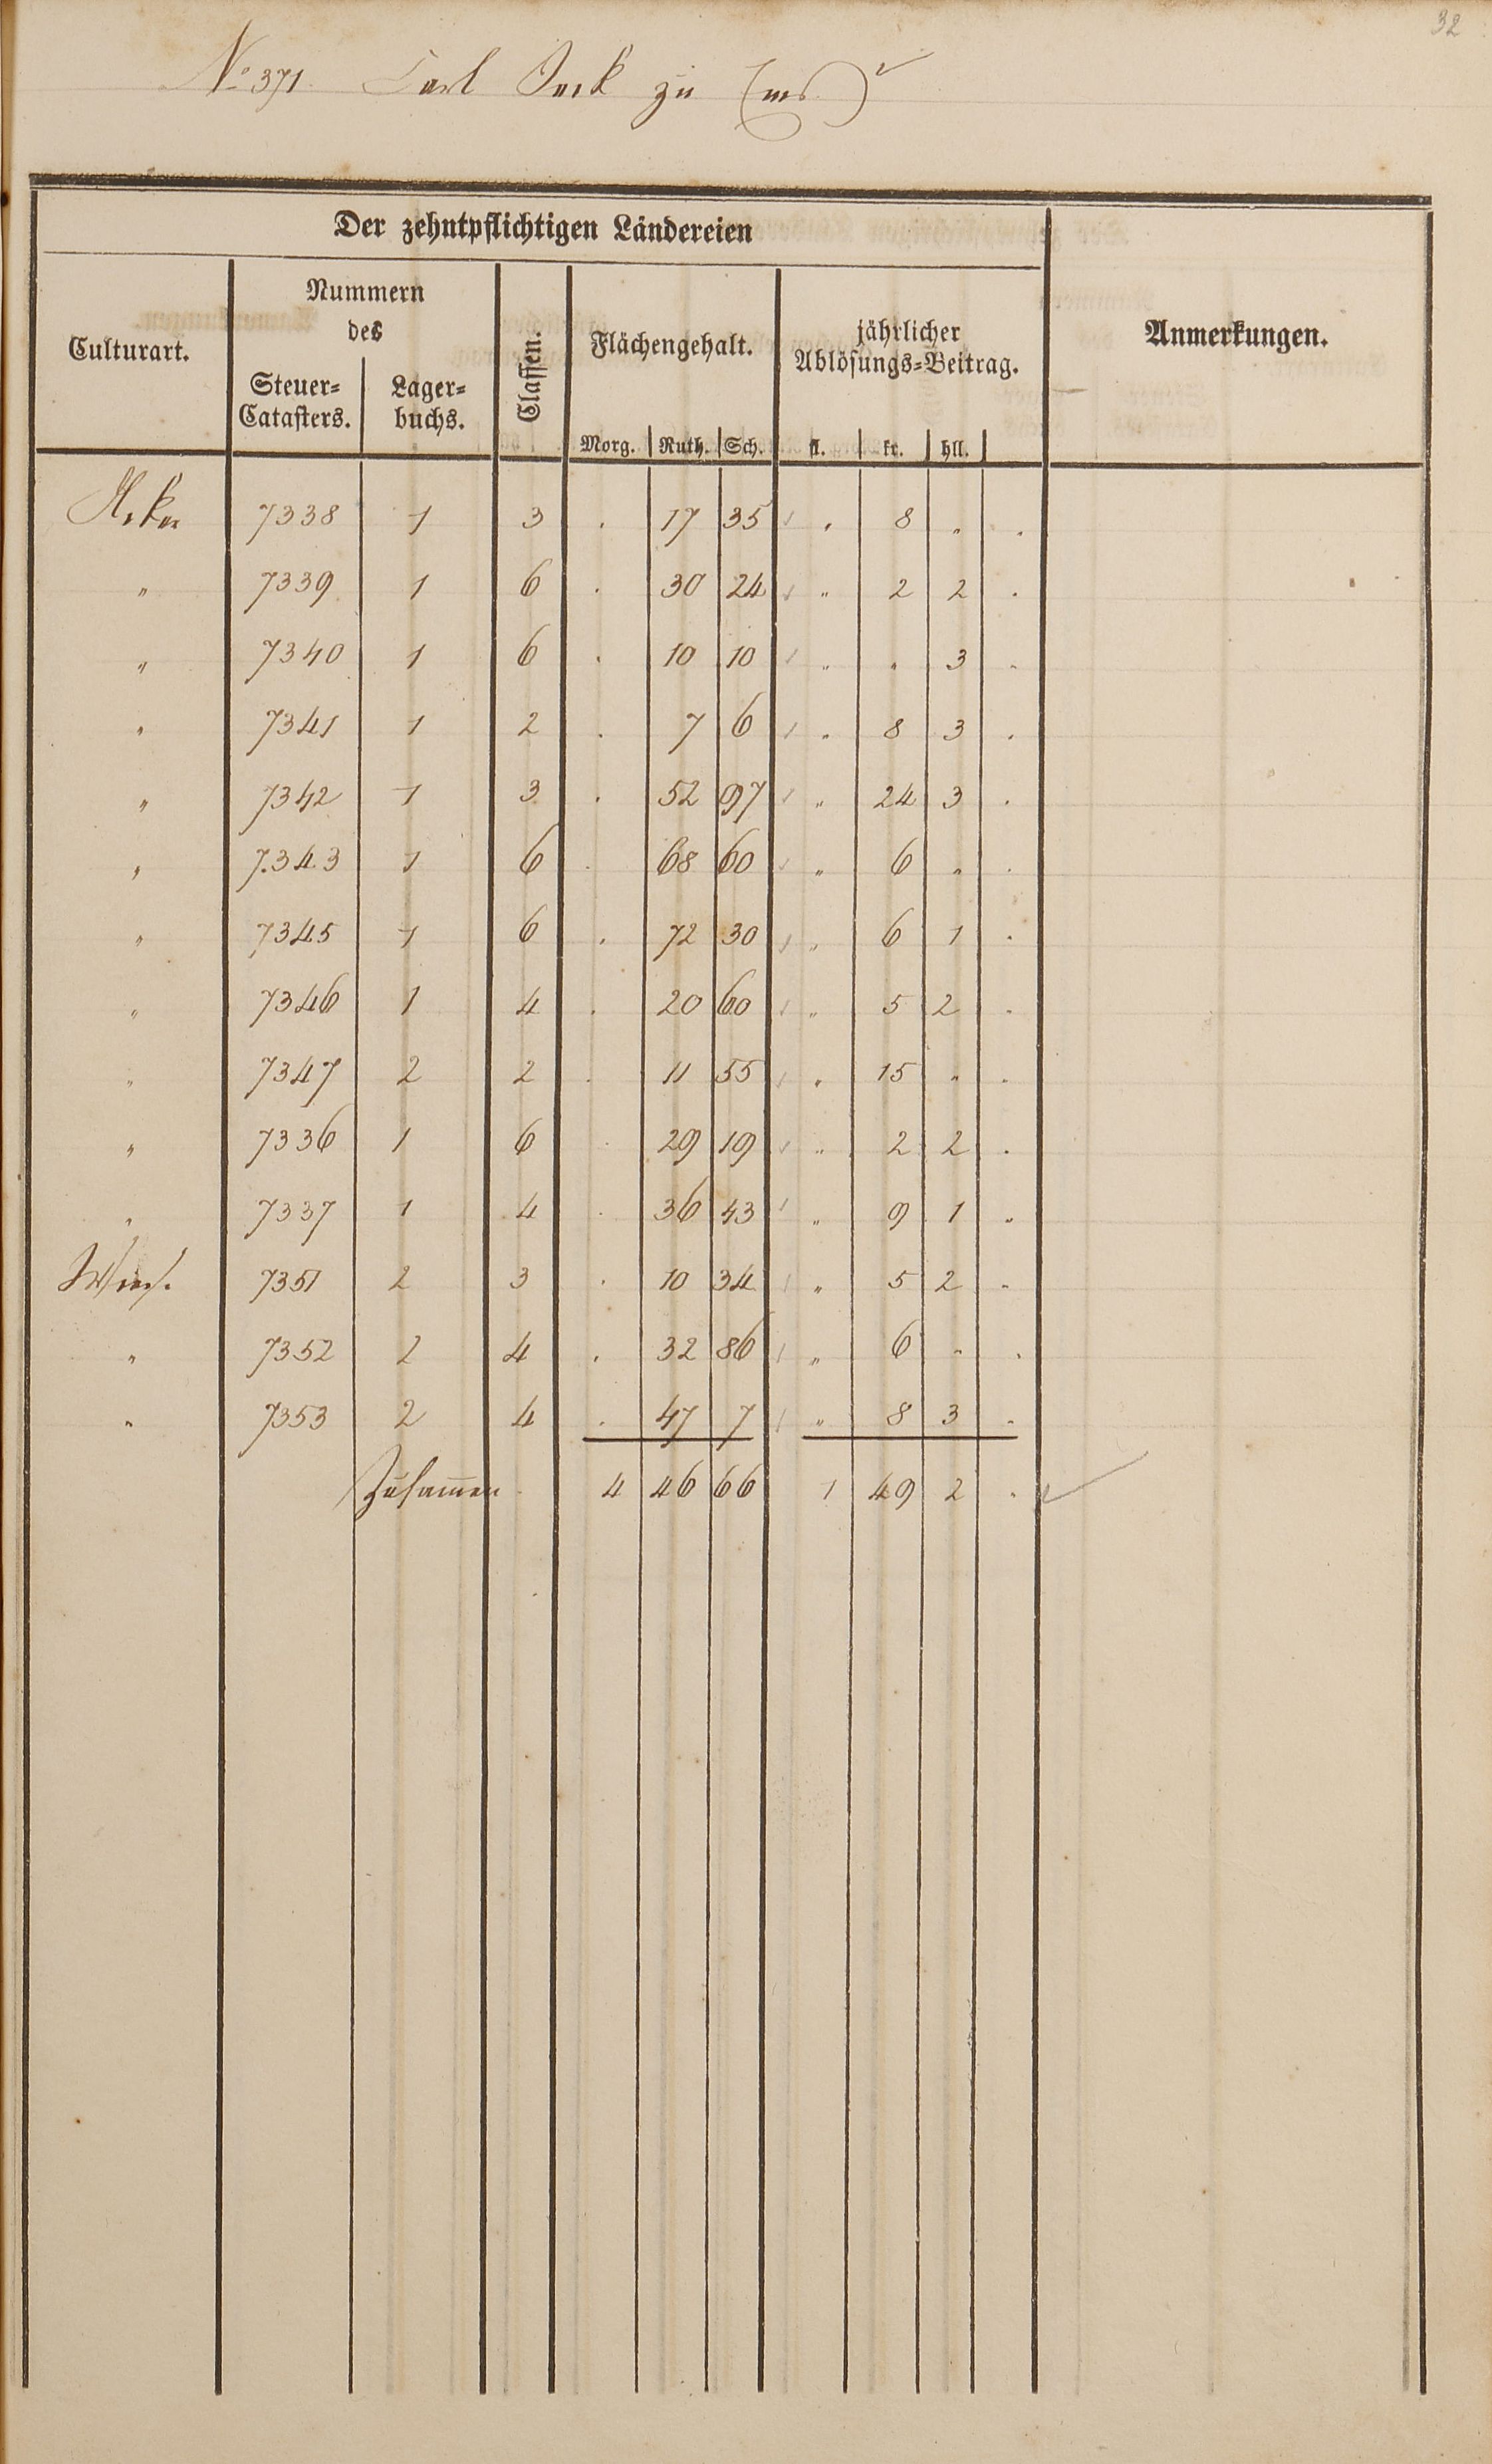 32
No 371. Carl Jack zu Ems
Der zehntpflichtigen Ländereien
Culturart. Nummern des Steuer-Catasters. Lager-buchs. Classen. Flächengehalt. jährlicher Ablösungs-Beitrag. Anmerkungen.
Morg. Ruth. Sch. fl. kr. hll.
Acker 7338 1 3 . 17 35 " 8 " .
" 7339 1 6 . 30 24 " 2 2 .
" 7340 1 6 . 10 10 " . 3 .
" 7341 1 2 . 7 6 " 8 3 .
" 7342 1 3 . 52 97 " 24 3 .
" 7343 1 6 . 68 60 " 6 " .
" 7345 1 6 . 72 30 " 6 1 .
" 7346 1 4 . 20 60 " 5 2 .
" 7347 2 2 . 11 55 " 15 " .
" 7336 1 6 . 29 19 " 2 2 .
" 7337 1 4 . 36 43 " 9 1 "
Wies. 7351 2 3 . 10 34 " 5 2 .
" 7352 2 4 . 32 86 " 6 " .
" 7353 2 4 . 47 7 " 8 3 .
Zusammen 4 46 66 1 49 2 .